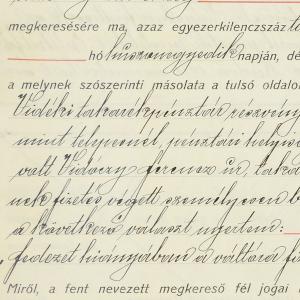 megkeresésére ma, azaz egyezerkilenczszáz
hó huszonegyedik napján, dé
a melynek szószerinti másolata a tulsó oldalon
Vidéki takarékpénztár részvény
mint telepesnél, pénztári helyisé
valt Vidóczy Ferencz úr, taka
nek fizetés végett személyesen b
a következő választ nyertem:
fedezet hiányában a váltóra fi
Miről, a fent nevezett megkereső fél jogai